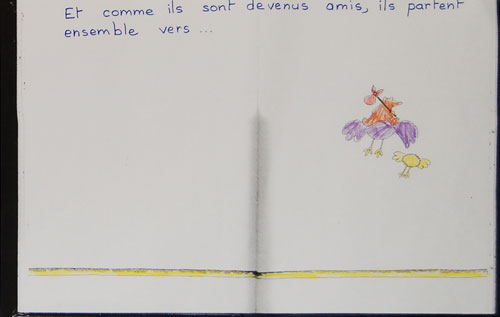 Et comme ils sont devenus amis, ils partent
ensemble vers ...